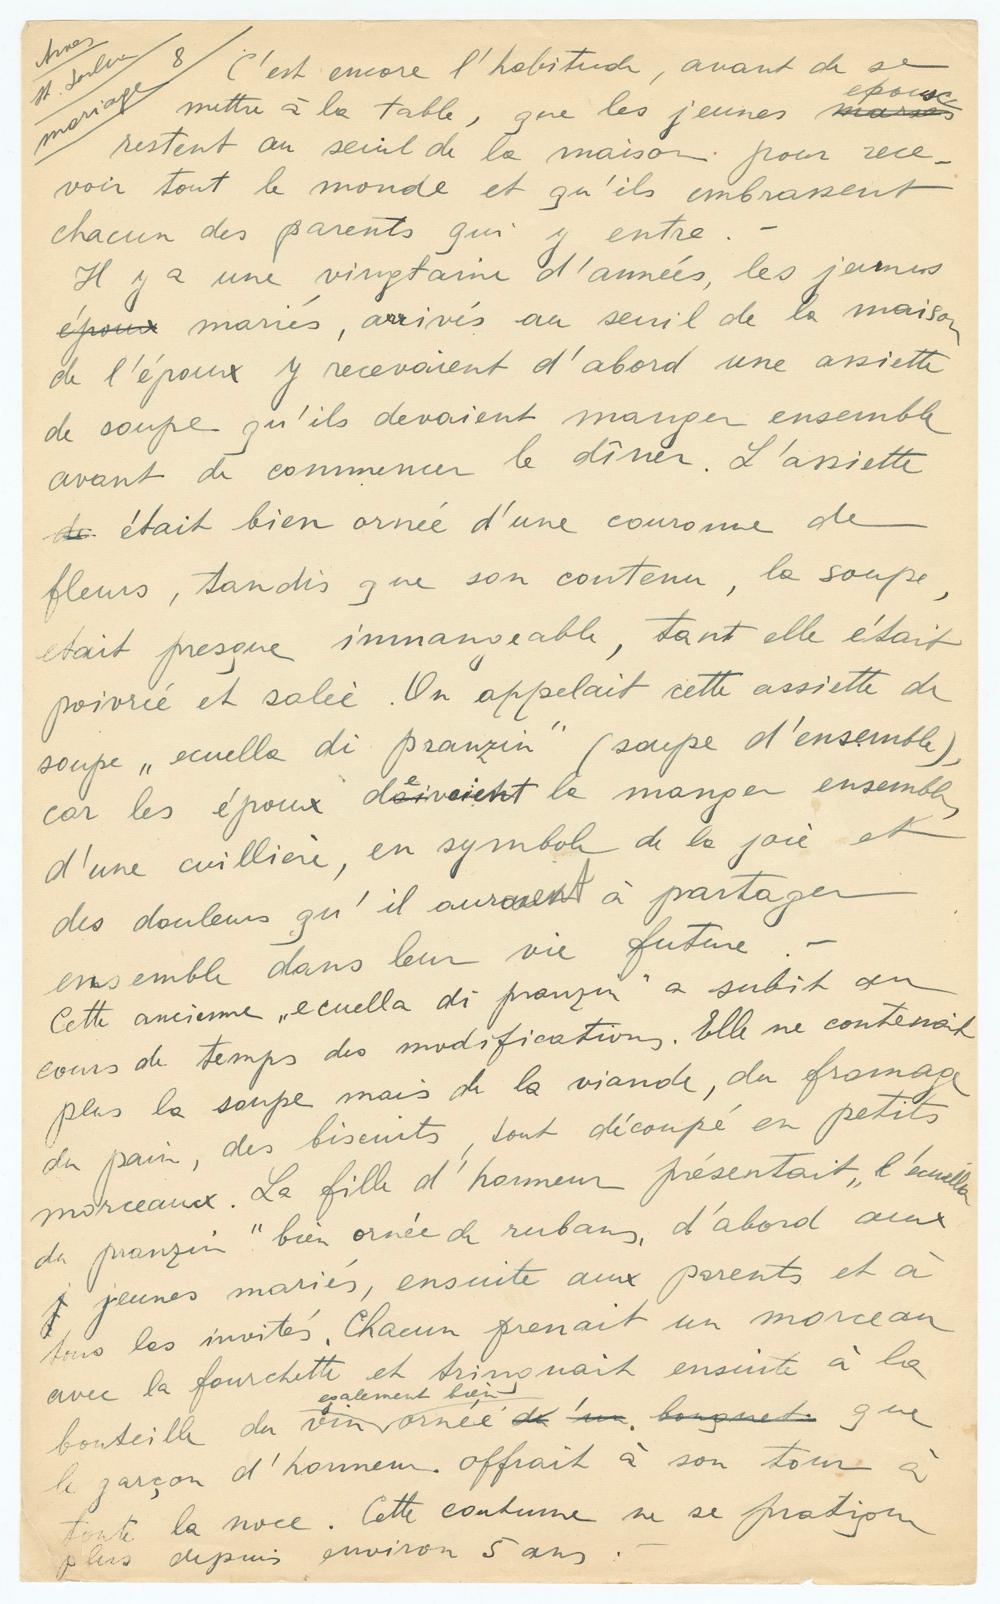 Arnas
St. Sorlin
mariage
8
C'est encore l'habitude, avant de se
mettre à la table, que les jeunes mariés épouse
restent au seuil de la maison pour rece-
voir tout le monde et qu'ils embrassent
chacun des parents qui y entre. -
Il y a une vingtaine d'années, les jeunes
époux mariés, arrivés au seuil de la maison
de l'époux y recevaient d'abord une assiette
de soupe qu'ils devaient manger ensemble
avant de commencer le dîner. L'assiette
de était bien ornée d'une couronne de
fleurs, tandis que son contenu, la soupe,
etait presque immangeable, tant elle était
poivrié et saleé. On appelait cette assiette de
soupe „ecuella di pranzin" (soupe d'ensemble),
car les époux devaient la manger ensemble,
d'une cuillière, en symbole de la joie et
des douleurs qu'il auraient à partager
ensemble dans leur vie future. -
Cette ancienne „ecuella di pranzin" a subit au
cours de temps des modifications. Elle ne contenait
plus la soupe mais de la viande, du fromage
du pain, des biscuits, tout découpé en petits
morceaux. La fille d'honneur présentait „l'écuella
du pranzin" bien ornée de rubans, d'abord aux
j jeunes mariés, ensuite aux parents et à
tous les invités. Chacun prenait un morceau
avec la fourchette et trinquait ensuite à la
egalement bien
bouteille du vin ornée de un bouquet que
le garçon d'honneur offrait à son tour à
toute la noce. Cette coutume ne se pratique
plus depuis environ 5 ans. -